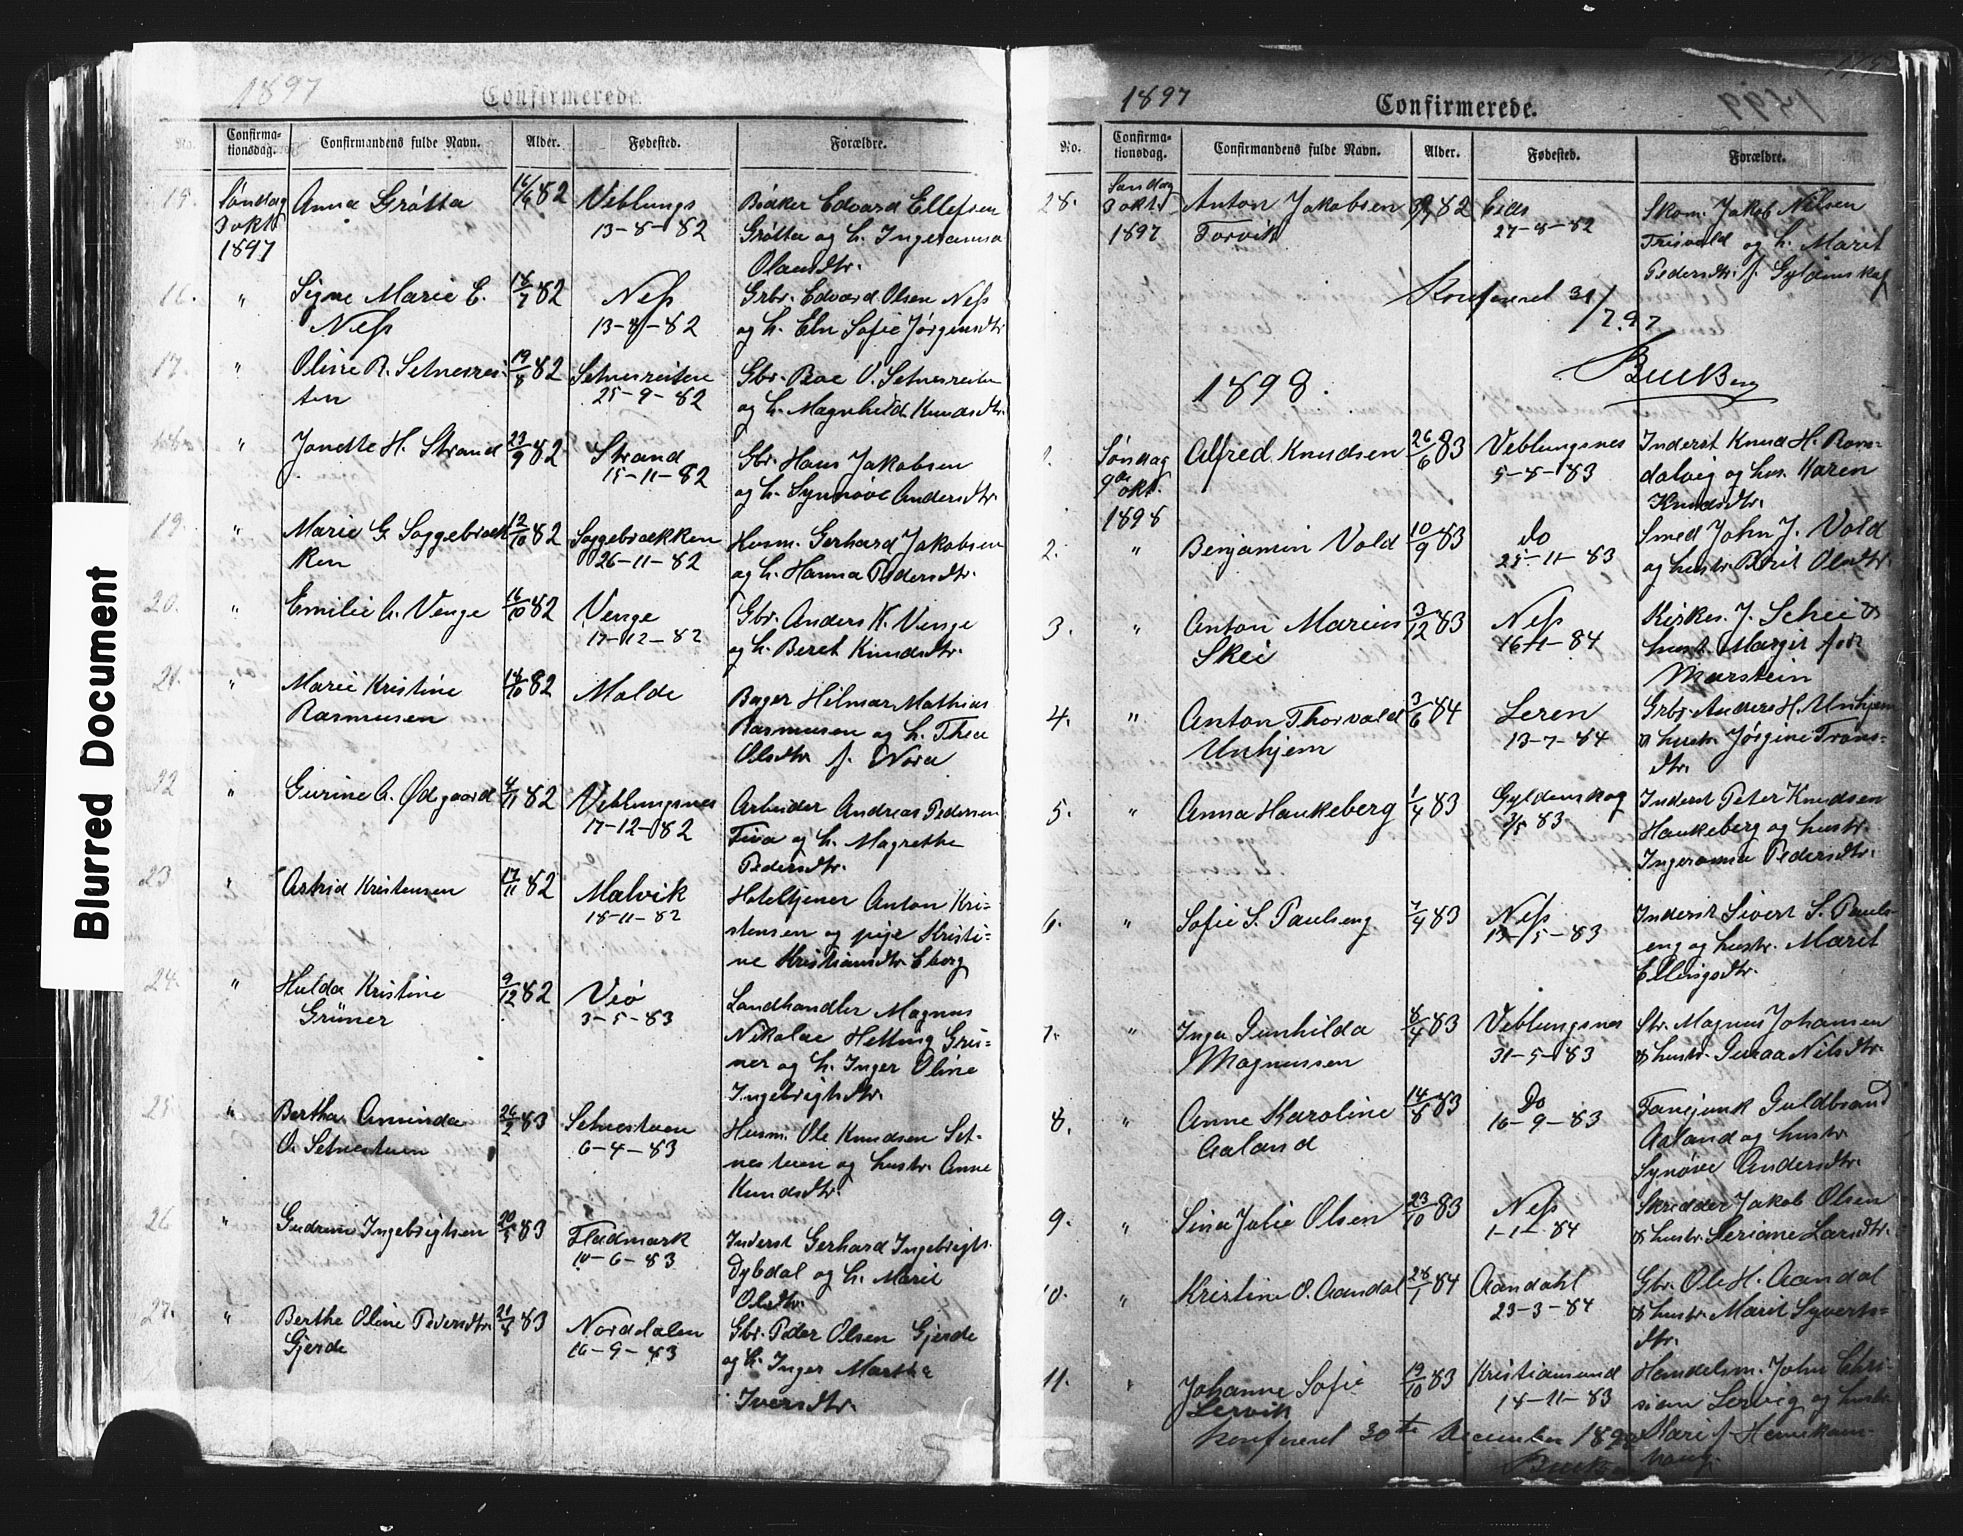 Blurred Document
1897
Confirmerede.
No.
Confirma-
tionsdag.
Confirmandens fulde Navn.
Alder.
Fødested.
Forældre.
Søndag
3 okt
1897
Anna Grøtta
82
Veblungs
13-8-82
Edvard Ellefsen
Grøtta og h. Ingeranna
Olausdtr.
16.
"
Signe Marie E.
Ness
18/7 82
Ness
13-8-82
Grbr. Edvard Olsen Ness
og h. Eln Sofie Jørgensdtr
17.
"
Oline R. Setnesrei-
ten
19/8 82
Setnesreiten
25-9-82
Gbr. Roe O. Setnesreiten
og h. Magnhild Knudsdtr.
18.
"
Jondte H. Strand
23/9 82
Strand
15-11-82
Gbr. Hans Jakobsen
og h. Synnøve Andersdtr.
19.
"
Marie G. Soggebroek
ken
12/10 82
Soggebroekken
26-11-82
Husm. Gerhard Jakobsen
og h. Hanna Pedersdtr.
20.
"
Emilie A. Venge
16/10 82
Venge
17-12-82
Gbr. Anders K. Venge
og h. Beret Knudsdtr.
21.
"
Marie Kristine
Rasmussen
14/10 82
Molde
Bager Hilmar Mathias
Rasmussen og h. Thea
Olsdtr. f. Nora
22
"
Gurine A. Ødegaard
4/11 82
Veblungsnes
17-12-82
Arbeider Andreas Pedersen
Fiva og h. Magrethe
Pedersdtr.
23.
"
Astrid Kristensen
17/11 82
Malvik
18-11-82
Hoteltjener Anton Kri-
stensen og pige Kristi-
ne Kristiansdtr. Eborg
24.
"
Hulda Kristine
Grüner
9/12 82
Veø
3-5-83
Landhandler Magnus
Nikolae Hetting Grü-
ner og h. Inger Oline
Ingebrigtsdtr.
25
"
Bertha Aminda
O. Setnestuen
26/2 83
Setnestuen
6-4-83
Husm. Ole Knudsen Set-
nestuen og hustr. Anne
Knudsdtr.
26
"
Gudrun Ingebrigtsen
20/5 83
Fladmark
10-6-83
Inderst Gerhard Ingebrigts.
Dybdal og h. Marit
Olsdtr.
27.
"
Berthe Oline Pedersdtr.
Gjerde
21/8 83
Norddalen
16-9-83
Gbr. Peder Olsen Gjerde
og h. Inger Marthe
Iversdtr.
1897
Confirmerede.
No.
Confirma-
tionsdag.
Confirmandens fulde Navn.
Alder.
Fødested.
Forældre.
28.
Søndag
3 okt
1897
Anton Jakobsen
Torvik
82
Eids
27-8-82
Skom. Jakob Nilsen
Trisvold og h. Marit
Pedersdtr. f. Gyldenskog
Konfereret 31/
7.97
1898.
1.
Søndag
9de
okt.
1898
Alfred Knudsen
26/6 83
Veblungsnes
5-8-83
Inderst Knud H. Roms-
dalvig og hus. Karen
Knudsdtr.
2.
"
Benjamin Vold
10/9 83
Do
25-11-83
Smed John J. Vold
og hustr. Brit Olsdtr.
3.
"
Anton Marius
Skei
3/12 83
Ness
16-1-84
Kirkes. J. Schei &
hust. Margit født
Marstein
4.
"
Anton Thorvald
Unhjem
3/6 84
Leren
13-7-84
Grbr. Anders H. Unhjem
& hustr. Jørgine Trons-
dtr.
5.
"
Anna Haukeberg
1/4 83
Gyldenskog
3/5 83
Inderst Peter Knudsen
Haukeberg og hustr.
Ingeranna Pedersdtr.
6.
"
Sofie S. Paulseng
7/4 83
Ness
13-5-83
Inderst Sivert S. Pauls-
eng og hustr. Marit
Ellingsdtr.
7.
"
Inga Gunhilda
Magnussen
8/4 83
Veblungsnes
31-5-83
Str. Magnus Johansen
& hustr. Guraa Nilsdtr.
8.
"
Anne Karoline
Aaland
14/8 83
Do
16-9-83
Fanejunk Guldbrand
Aaland og hustr.
Synøve Andersdtr.
9.
"
Sina Julie Olsen
23/10 83
Ness
1-1-84
Skredder Jakob Olsen
& hustr. Seriane Larsdtr.
10.
"
Kristine O. Aandal
28/1 84
Aandahl
23-3-84
Gbr. Ole H. Aandal
& hustr. Marit Syverts-
dtr.
11.
"
Johanne Sofie
Lervik
19/10 83
Kristiansund
18-11-83
Handelsm. John Chri-
sian Lervig og hustr.
Kari f. Henrikson-
Konfereret 30te December 1898